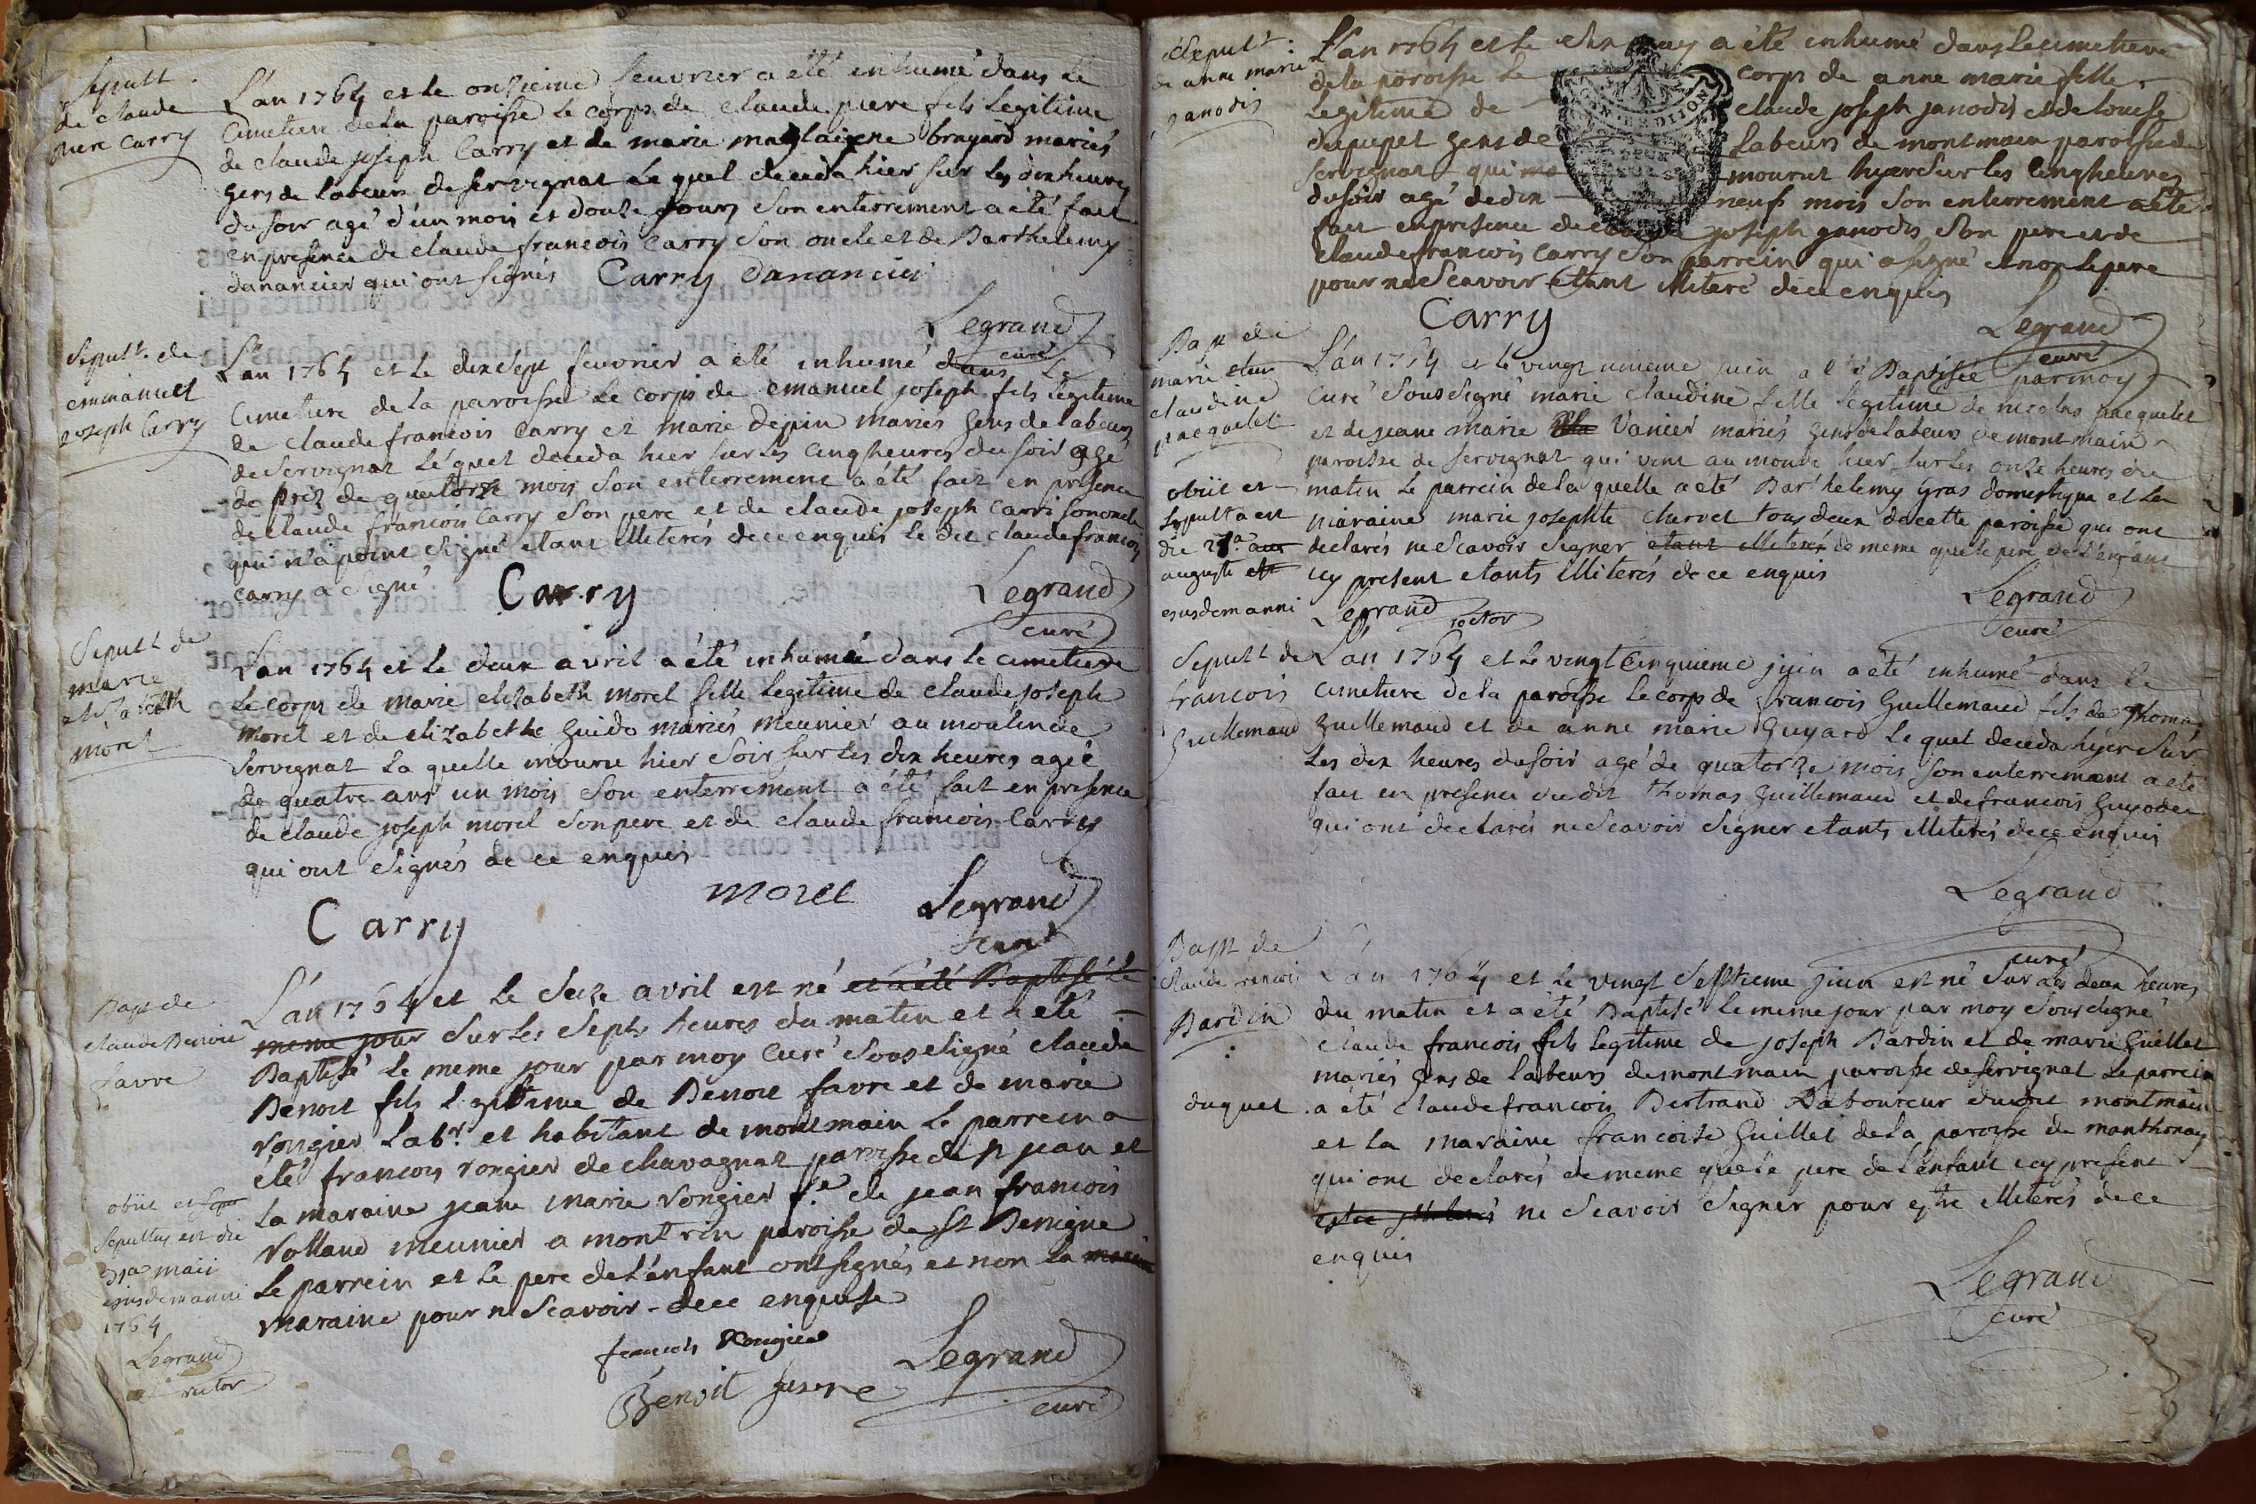 Sepult.
de claude
piere Carry
L'an 1764 et le onzieme feuvrier a été inhumé dans le
Cimetiere de la paroisse le corps de claude piere fils legitime
de claude joseph Carry et de marie magdalaine brayard mariés
gens de labeurs de servignat le quel deceda hier sur les dix heures
du soir agé d'un mois et douze jours son enterrement a été fait
en presence de claude francois Carry son oncle et de Barthelemy
danancier qui ont signés Carry danancier
Legrand
curé
Sepult. de
emmanuel
joseph Carry
L'an 1764 et le dix sept feuvrier a été inhumé dans le
Cimetiere de la paroisse le corps de emanuel joseph fils legitime
de claude francois Carry et marie depin mariés gens de labeurs
de servignat lequel deceda hier sur les cinq heures du soir agé
de prèz de quatorze mois son enterrement a été fait en presence
de claude francois Carry son pere et de claude joseph Carri son oncle
qui n'a point signé etant illiterés de ce enquis le dit claude francois
Carry a signé
Carry
Legrand
curé
Sepult. de
marie
elizabeth
morel
L'an 1764 et le deux avril a été inhumée dans le cimetiere
le corps de marie elizabeth morel fille legitime de claude joseph
morel et de elizabethe guido mariés meunier au moulin de
servignat la quelle mouru hier soir sur les dix heures agée
de quatre ans un mois son enterrement a été fait en presence
de claude joseph morel son pere et de claude francois Carry
qui ont signés de ce enquis
morel
Legrand
curé
Carry
Bapt de
claude Benoit
favre
L'an 1764 et le seize avril est né et a été Baptisé le
meme jour sur les sept heures du matin et a été
Baptisé le meme jour par moy curé soussigné claude
Benoit fils legitime de Benoit favre et de marie
rongier lab.r et habitant de montmain le parrein a
été francois rongier de chavagnat paroisse de st jean et
la maraine jeane marie rongier f.e de jean francois
Volland meunier a montrin paroisse de st Benigne
le parrein et le pere de l'enfant ont signés et non la
maraine pour ne scavoir de ce enquise
obiit et
sepultus est die
31a maii
ejusdem anni
1764
Legrand
rector
francois Rongier
Benoit favre
Legrand
curé
Sepult.
de anne marie
janodis
L'an 1764 et le dix may a été inhumé dans le cimetiere
de la paroisse le corps de anne marie fille
legitime de claude joseph janodis et de louise
dupupet gens de labeurs de montmain paroisse de
servignat qui mourut hyer sur les cinq heures
du soir agé de dix neuf mois son enterrement a été
fait en presence de claude joseph janodis son pere et de
claude francois Carry son parrein qui a signé et non le pere
pour ne scavoir etant illiteré de ce enquis
Carry
Legrand
curé
Bapt de
marie
claudine
pacquelet
L'an 1764 et le vingt unieme juin a été Baptisée par moy
Curé soussigné marie claudine fille legitime de nicolas pacquelet
et de jeane marie Vanier mariés gens de labeurs de montmain
paroisse de servignat qui vint au monde hier sur les onze heures du
matin le parrein de la quelle a été Barthelemy Gras domestique et la
maraine marie josephte Chervet tous deux de cette paroisse qui ont
declarés ne scavoir signer etant illiterés de meme que le pere de l'enfant
icy present etants illiterés de ce enquis
obiit et
sepulta est
die
auguste
ejusdem anni
Legrand
rector
Legrand
curé
Sepult de
francois
guillemaud
L'an 1764 et le vingt cinquieme juin a été inhumé dans le
cimetiere de la paroisse le corps de francois guillemaud fils de thomas
guillemaud et de anne marie guyard le quel deceda hyer sur
les dix heures du soir agé de quatorze mois son enterrement a été
fait en presence du dit thomas guillemaud et de francois guyoder
qui ont declarés ne scavoir signer etants illiterés de ce enquis
Legrand
curé
Bapt de
claude francois
Bardin
L'an 1764 et le vingt septieme juin est né sur les deux heures
du matin et a été Baptisé le meme jour par moy soussigné
claude francois fils legitime de joseph Bardin et de marie Guillet
mariés gens de labeurs de montmain paroisse de servignat le parrein
duquel a été claude francois Bertrand laboureur dudit montmain
et la maraine francoise guillet de la paroisse de manthenay
qui ont declarés de meme que le pere de l'enfant icy present
ne scavoir signer pour estre illiterés de ce
enquis
Legrand
curé